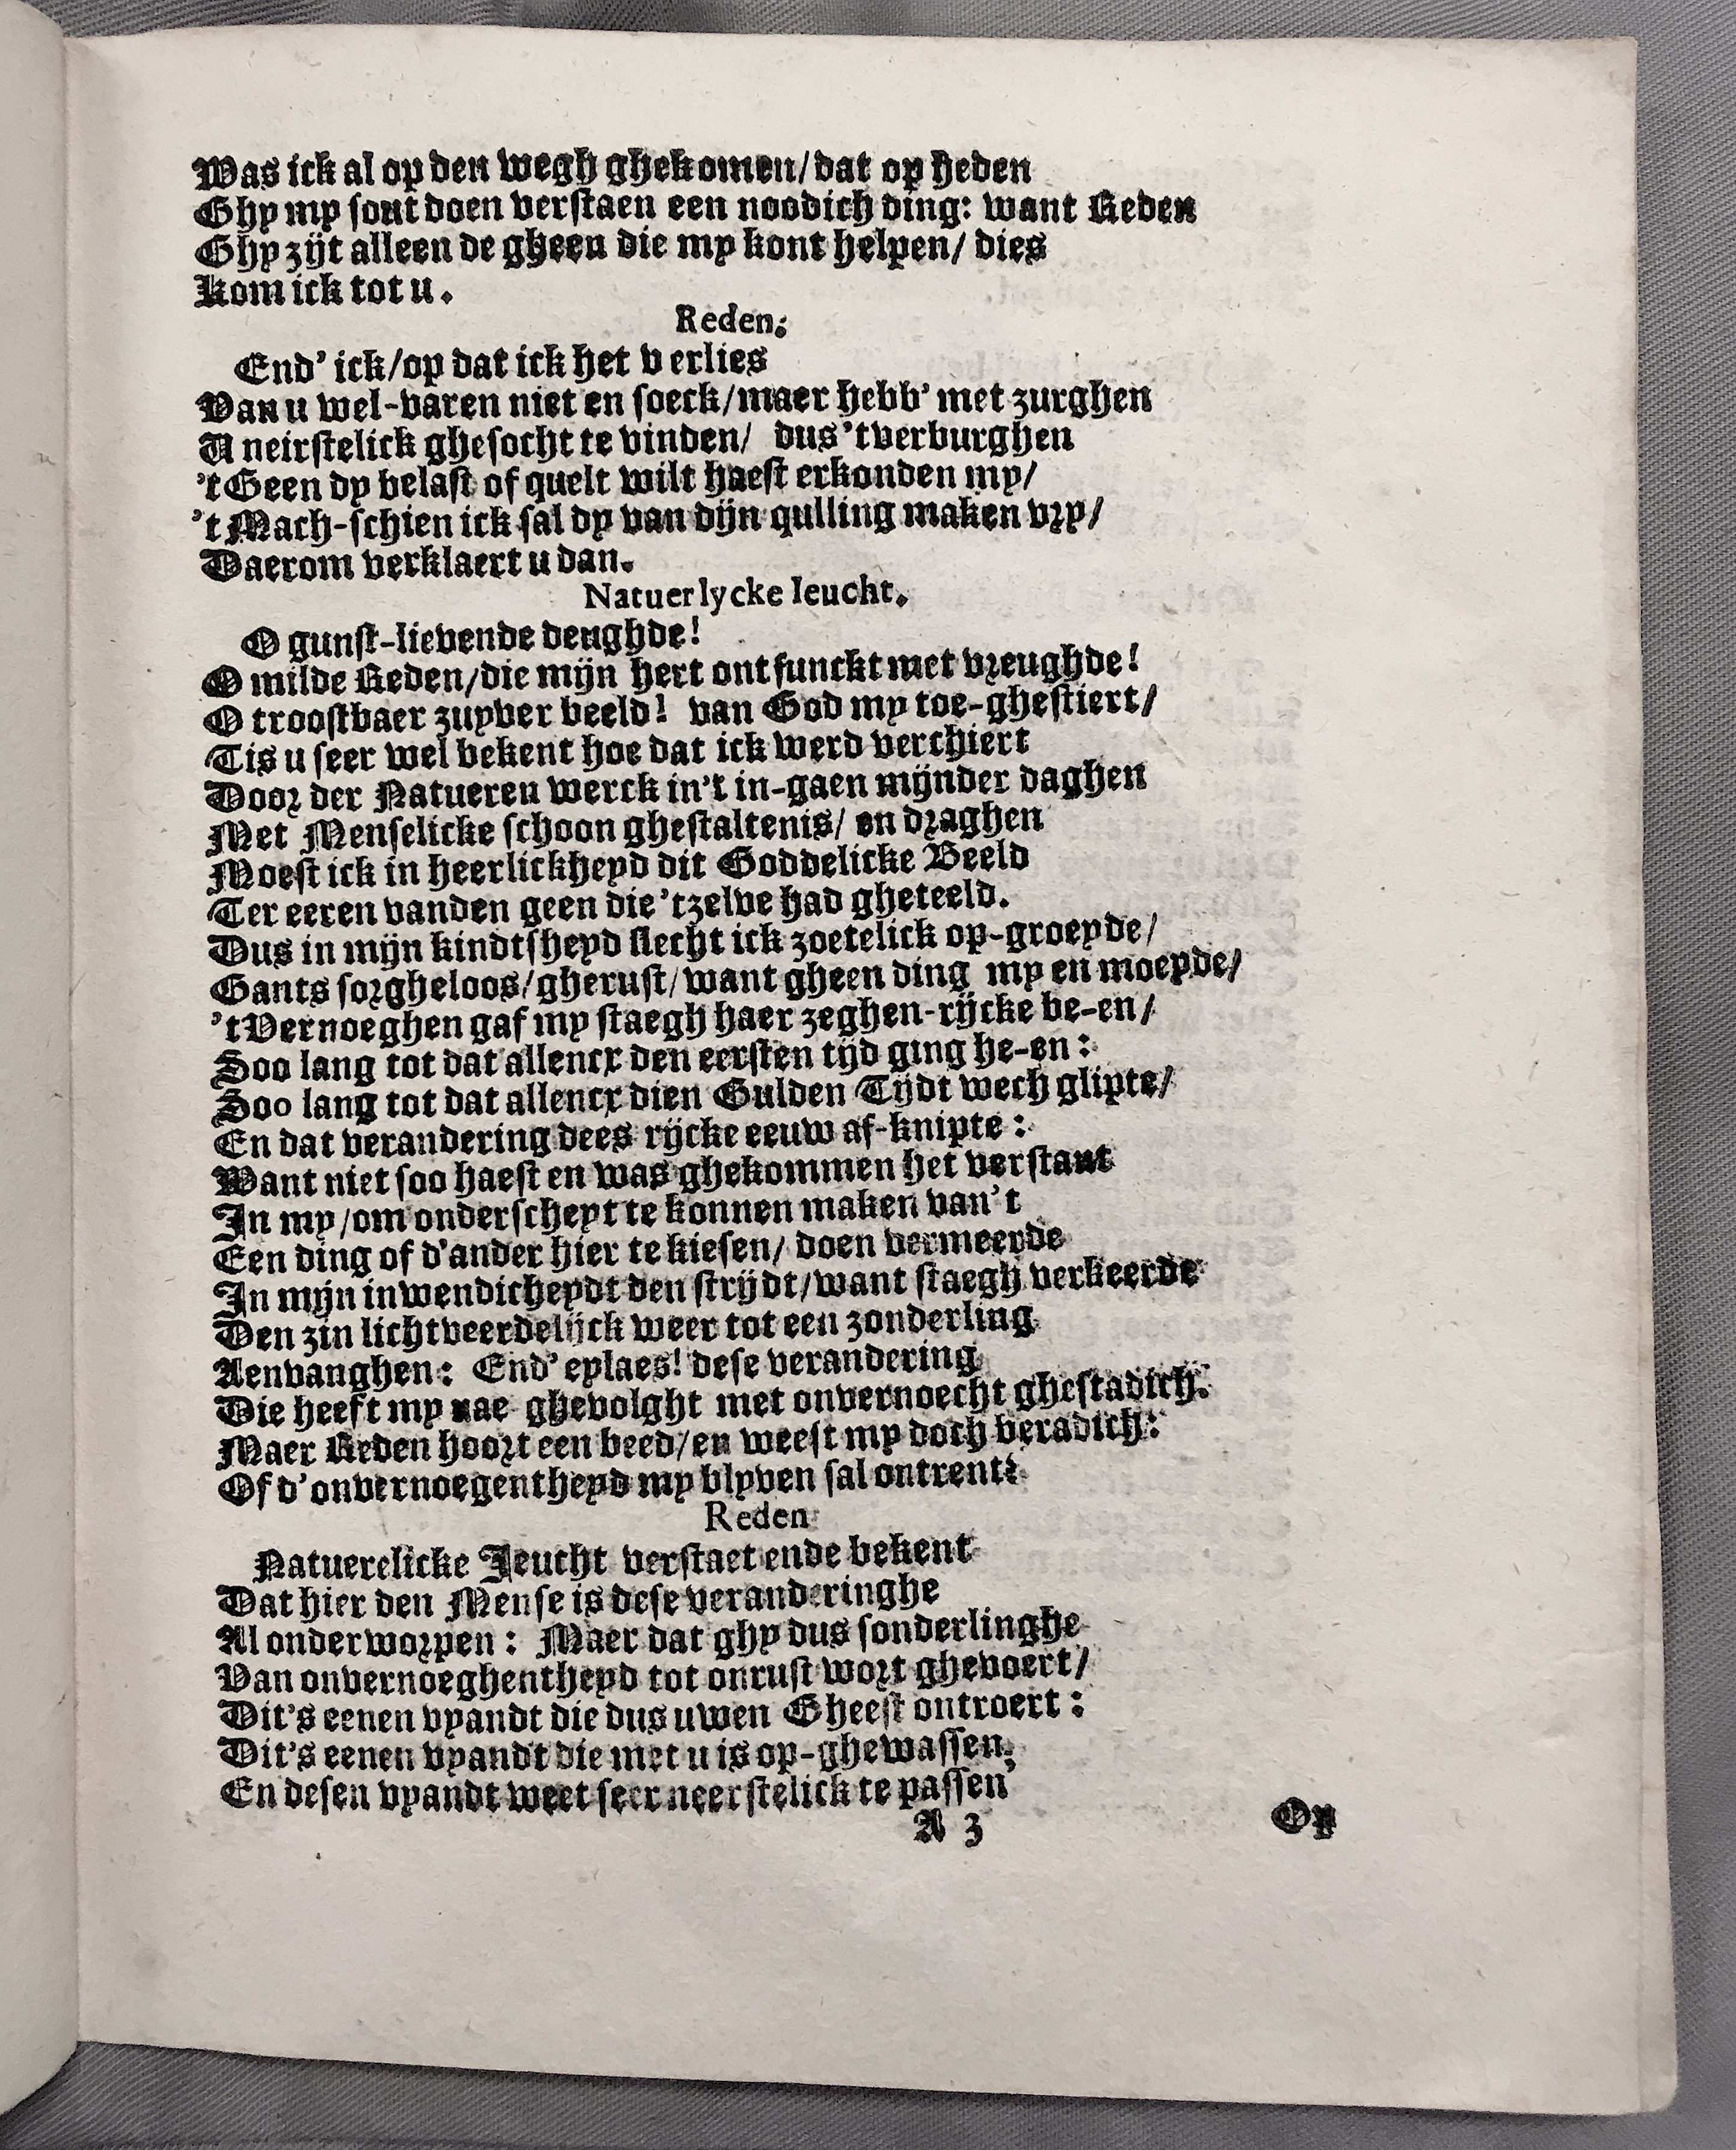 Was ick al op den wegh ghekomen/dat op heden
Ghy my sout doen verstaen een noodich ding: want Reden
Ghy zijt alleen de gheen die my kont helpen/ dies
Kom ick tot u.
Reden:
End' ick/op dat ick het verlies
Van u wel-varen niet en soeck/maer hebb' met zurghen
U neirstelick ghesocht te vinden/ dus 'tverburghen
't Geen dy belast of quelt wilt haest erkonden my/
't Mach-schien ick sal dy van dijn qulling maken vry/
Daerom verklaert u dan.
Natuerlycke Ieucht.
O gunst-lievende deughde!
O milde Reden/die mijn hert ontfunckt met vreughde!
O troostbaer zuyver beeld! van God my toe-ghestiert/
Tis u seer wel bekent hoe dat ick werd verchiert
Door der Natueren werck in't in-gaen mijnder daghen
Met Menselicke schoon ghestaltenis/ en draghen
Moest ick in heerlickheyd dit Goddelicke Beeld
Ter eeren vanden geen die 'tzelve had gheteeld.
Dus in mijn kindtsheyd slecht ick zoetelick op-groeyde/
Gants sorgheloos/gherust/want gheen ding my en moeyde/
't Vernoeghen gaf my staegh haer zeghen-rijcke be-en/
Soo lang tot dat allencx den eersten tijd ging he-en:
Soo lang tot dat allencx dien Gulden Tijdt wech glipte/
En dat verandering dees rijcke eeuw af-knipte:
Want niet soo haest en was ghekommen het verstant
In my/om onderscheyt te konnen maken van't
Een ding of d'ander hier te kiesen/ doen vermeerde
In mijn inwendicheydt den strijdt/want staegh verkeerde
Den zin lichtveerdelijck weer tot een zonderling
Aenvanghen: End' eylaes! dese verandering
Die heeft my nae ghevolght met onvernoecht ghestadich.
Maer Reden hoort een beed/en weest my doch beradich:
Of d'onvernoegentheyd my blyven sal ontrent?
Reden
Natuerelicke Jeucht verstaet ende bekent
Dat hier den Mense is dese veranderinghe
Al onderworpen: Maer dat ghy dus sonderlinghe
Van onvernoeghentheyd tot onrust wort ghevoert/
Dit's eenen vyandt die dus uwen Gheest ontroert:
Dit's eenen vyandt die met u is op-ghewassen;
En desen vyandt weet seer neerstelick te passen
A 3 Op